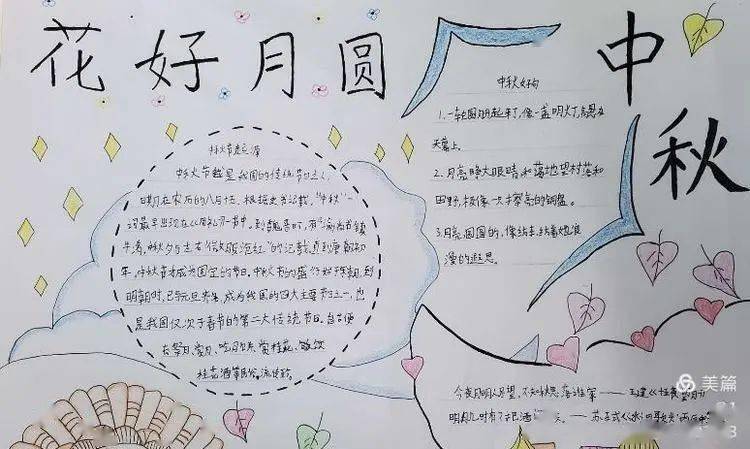 花好月圆
中秋
中秋节起源
中秋节是我国的传统节日之一
日期在农历的八月
根据史书记载，“中秋”一
词最早出现在《周礼》一书中。到魏晋时，有“谕尚书镇
牛渚，中秋夕与左右微服泛江”的记载。直到唐朝初
年，中秋节才成为固定的节日。中秋节的盛行始于宋朝，到
明朝时，已与元旦齐名，成为我国的四大主要节日之一，也
是我国仅次于春节的第二大传统节日。自古便
有祭月、赏月、吃月饼、赏桂花、饮
桂花酒等民俗，流传
中秋好句
1.一轮圆月升起来了，像一盏明灯，高悬在
天幕上。
2.月亮睁大眼睛
望村落和
田野，极像一块擦亮的铜盘。
3.月亮圆圆的，像
漫的遐思。
今夜月明人尽望，不知秋思落谁家——王建《
明月几时有？把酒
——苏轼《水调歌头
美篇